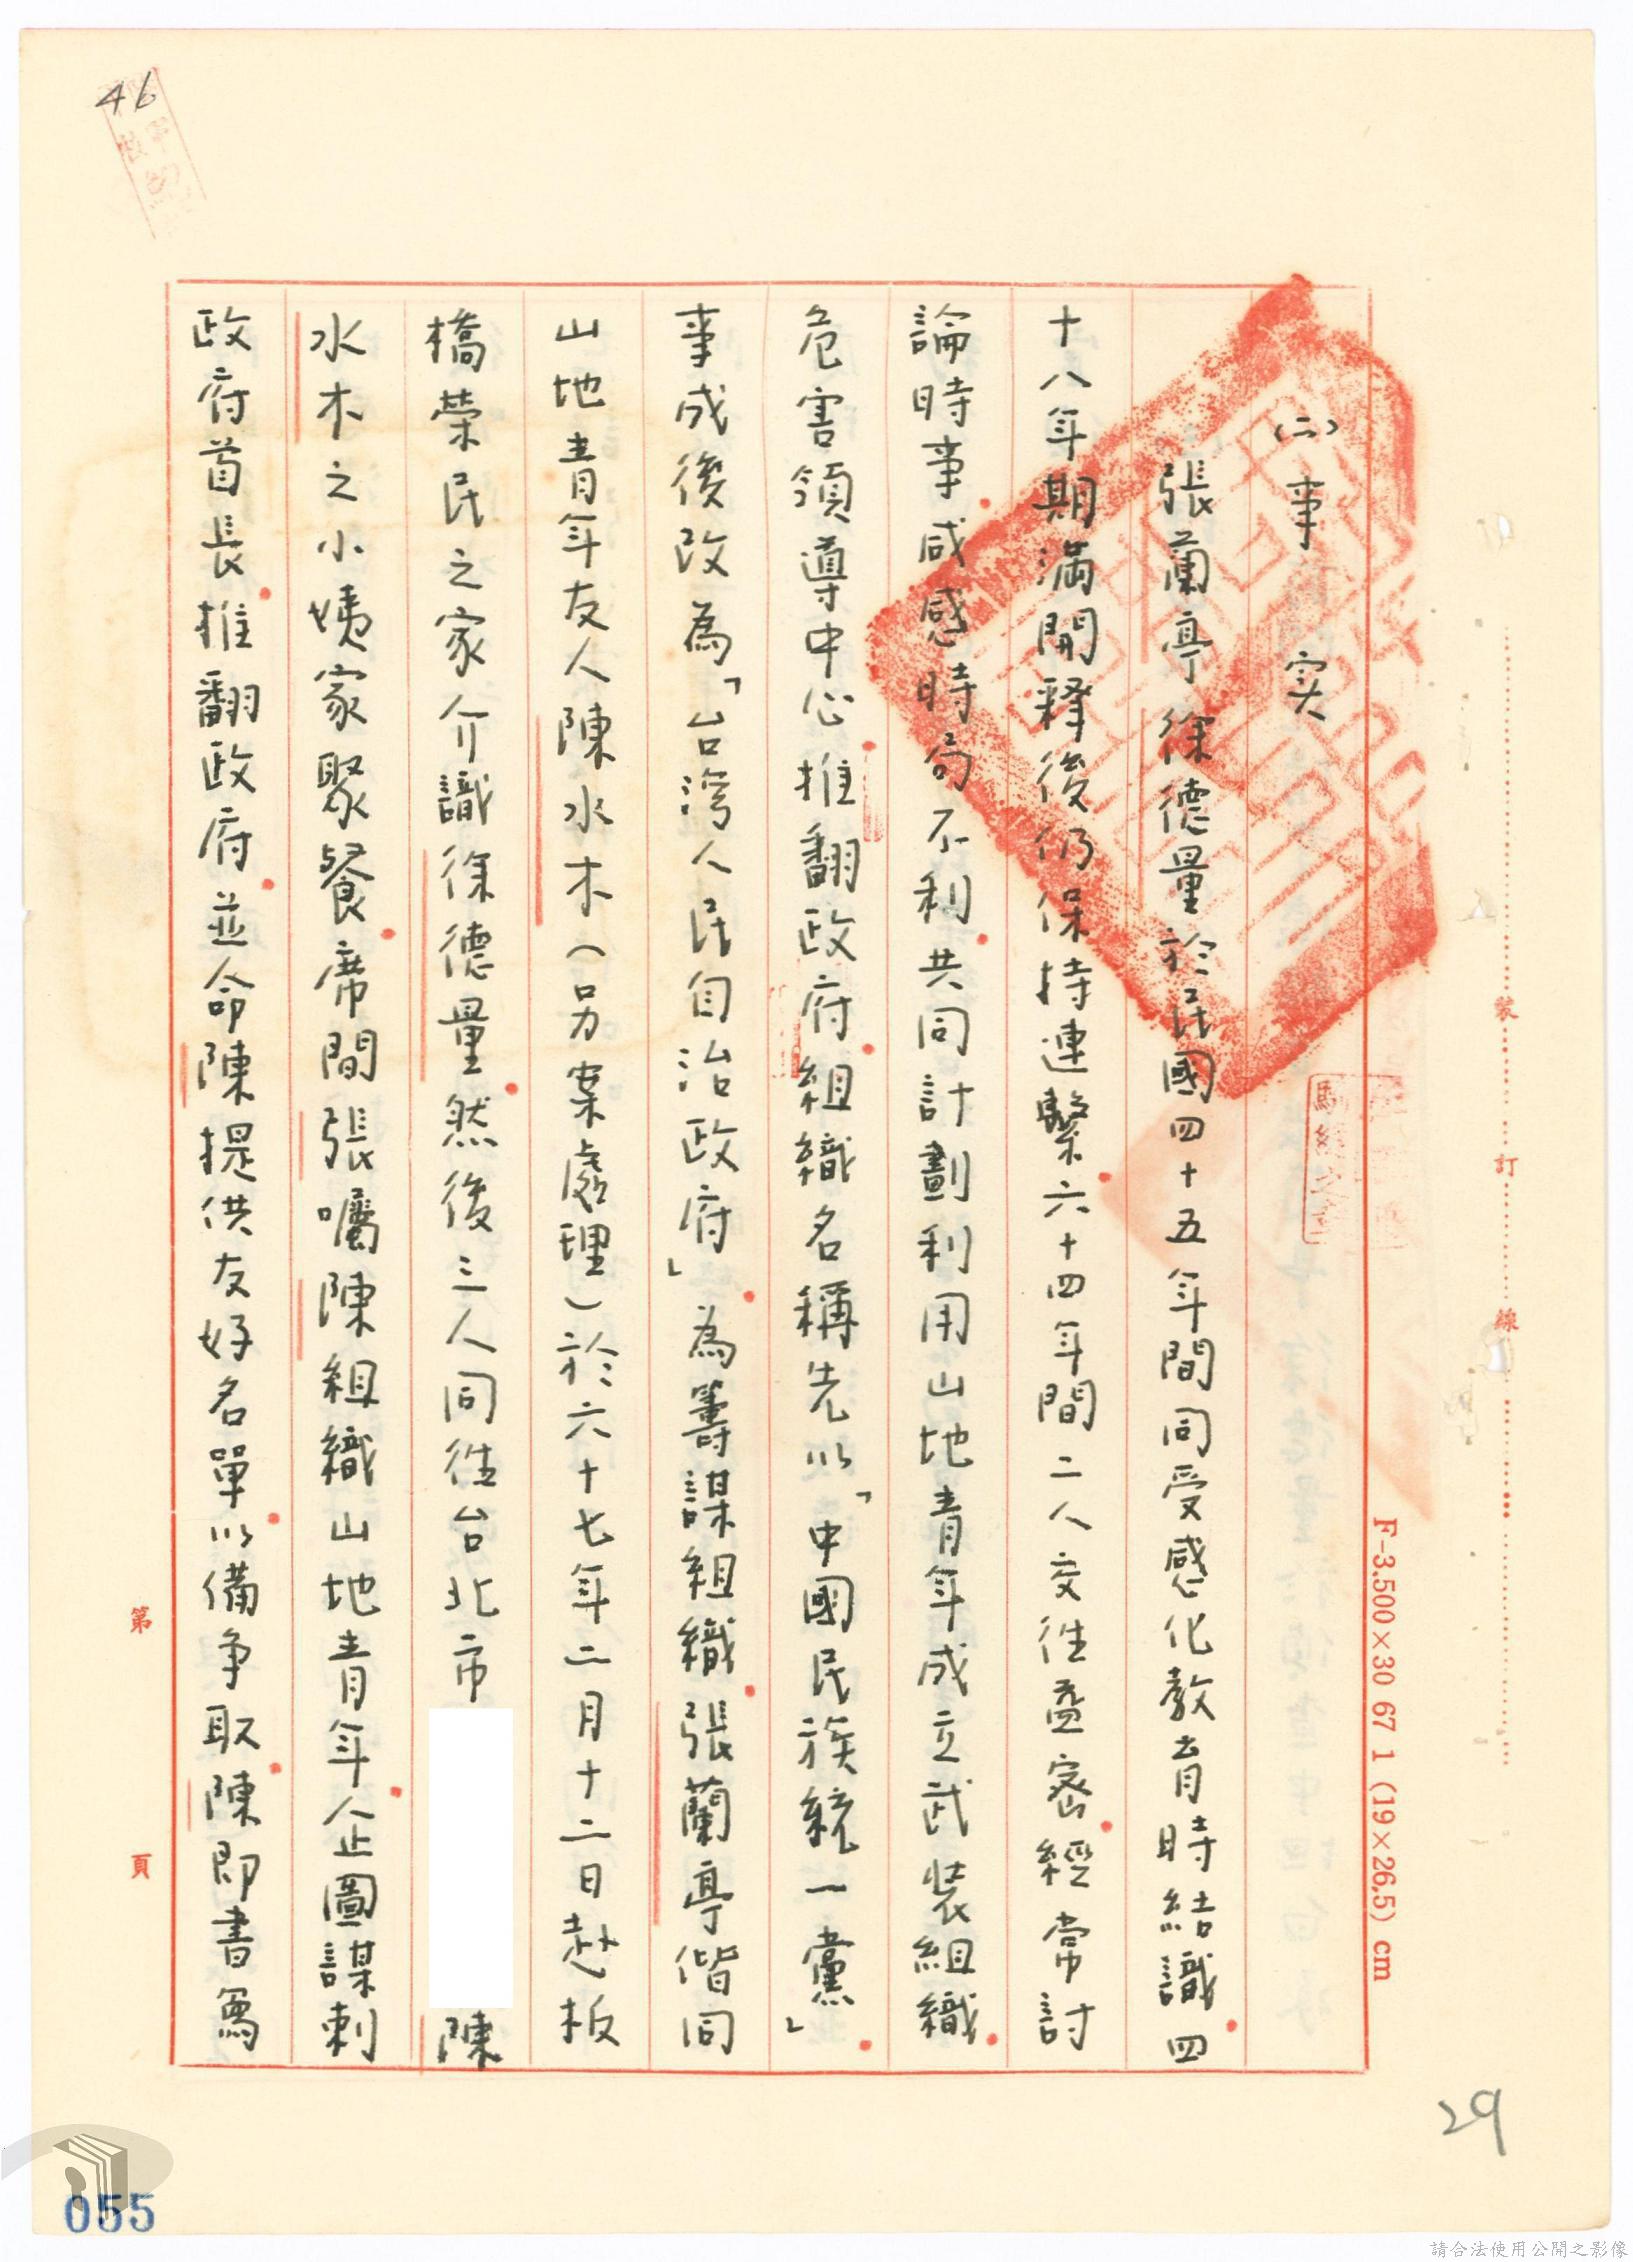 46
(二)事實
張蘭亭徐德量於民國四十五年間同受感化教育時結識四
十八年期滿開釋後仍保持連繫六十四年間二人交往益密經常討
論時事咸感時局不利共同計劃利用山地青年成立武装組織
危害領導中心推翻政府組織名稱先以「中國民族統一黨」
事成後改為「台灣人民自治政府」為籌謀組織張蘭亭偕同
山地青年友人陳水木(另案處理)於六十七年二月十二日赴板
橋榮民之家介識徐德量然後三人同往台北市
陳
水木之小姨家聚餐席間張囑陳組織山地青年企圖謀刺
政府首長推翻政府並命陳提供友好名單以備争取陳即書寫
裝
訂
線
F-3,500×30 67 1 (19×26.5) cm
第
頁
29
055
請合法使用公開之影像